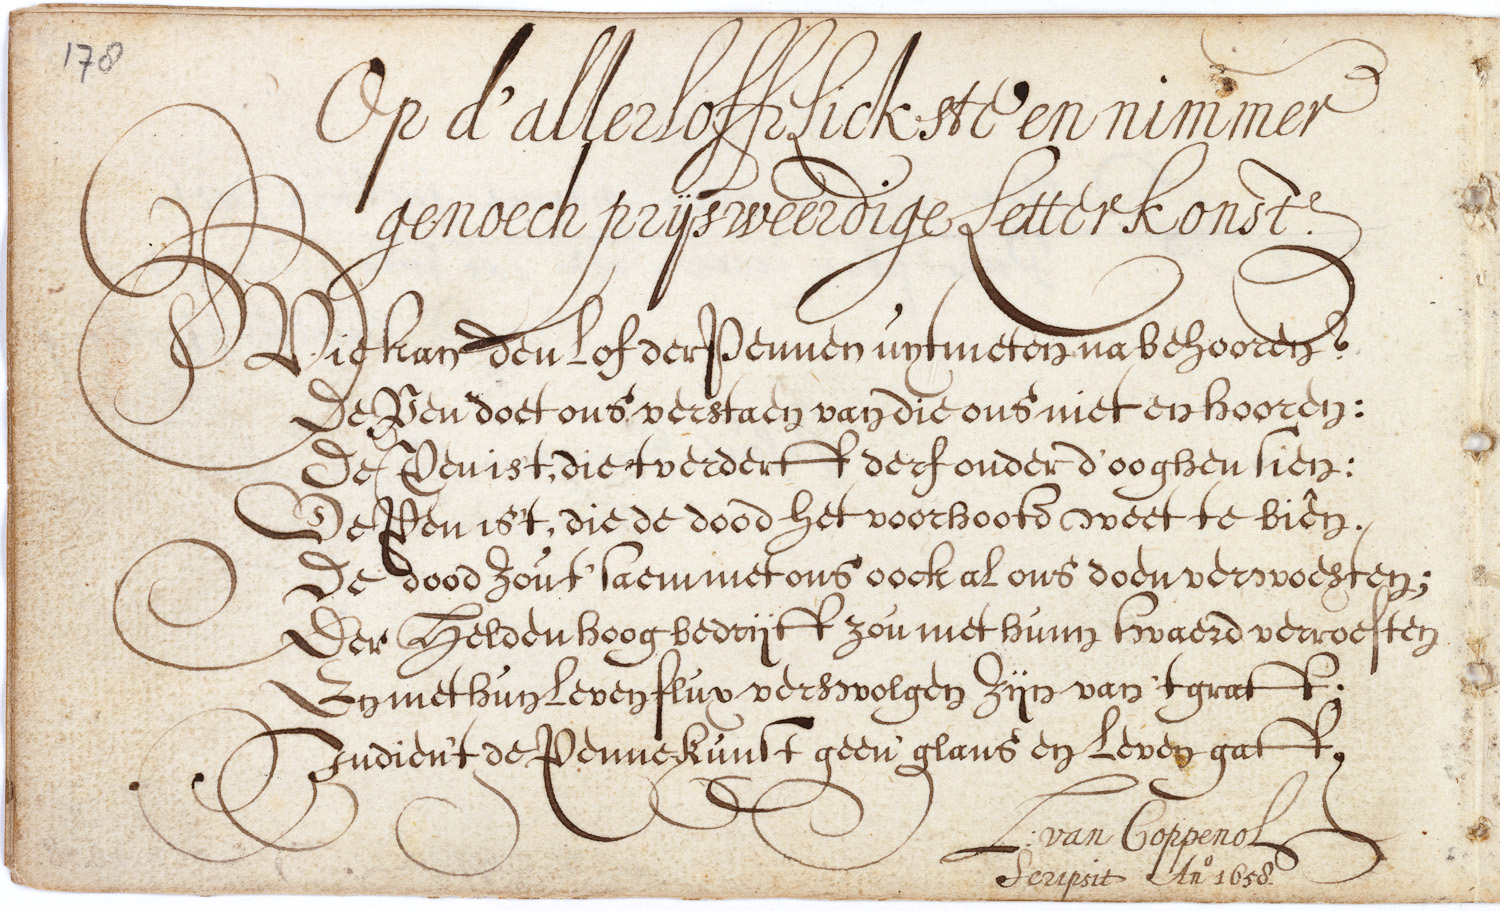 178
Op d'allerlofflickste en nimmer
genoech prijsweerdige Letterkonst.
Wie kan den Lof der Pennen uytmeten na behooren?
De Pen doet ons verstaen van die ons niet en hooren:
De Pen ist, die 't verderff derf onder d'ooghen sien:
De Pen is't, die de dood het voorhooft weet te biên.
De dood zout saem met ons oock al ons doen verwoesten;
Der Helden hoog bedrijff zou met hunn swaerd verroesten
En met hun Leven flux verswolgen zijn van 't graff;
Indien't de Pennekunst geen glans en Leven gaff,
L: van Coppenol
Scripsit An° 1658.